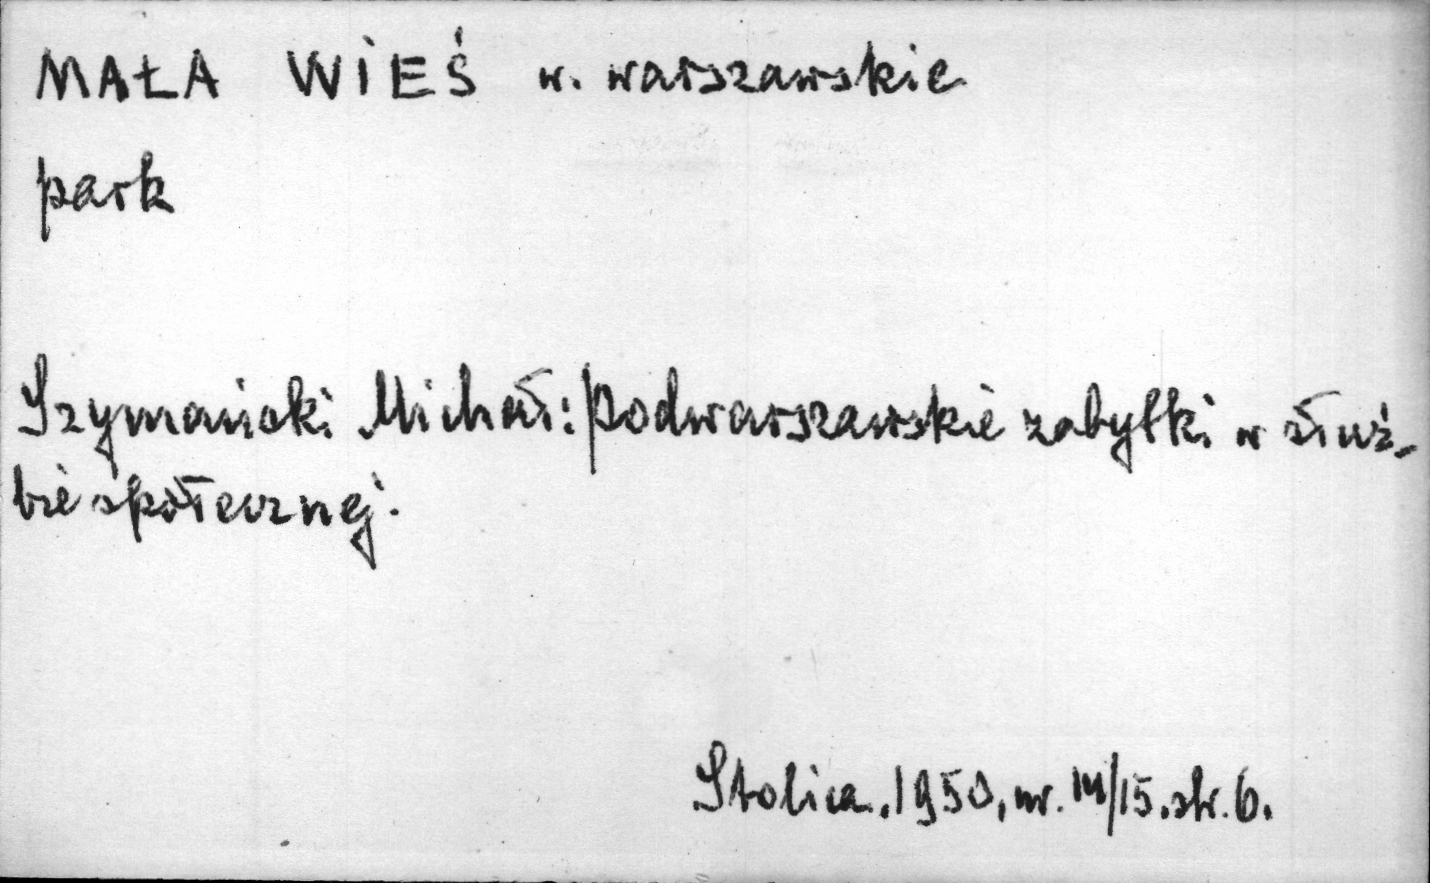 MAŁA WIEŚ w. warszawskie
park
Szymański Michał: Podwarszawskie zabytki w służ-
bie społecznej.
Stolica. 1950, nr. 14/15. str. 6.